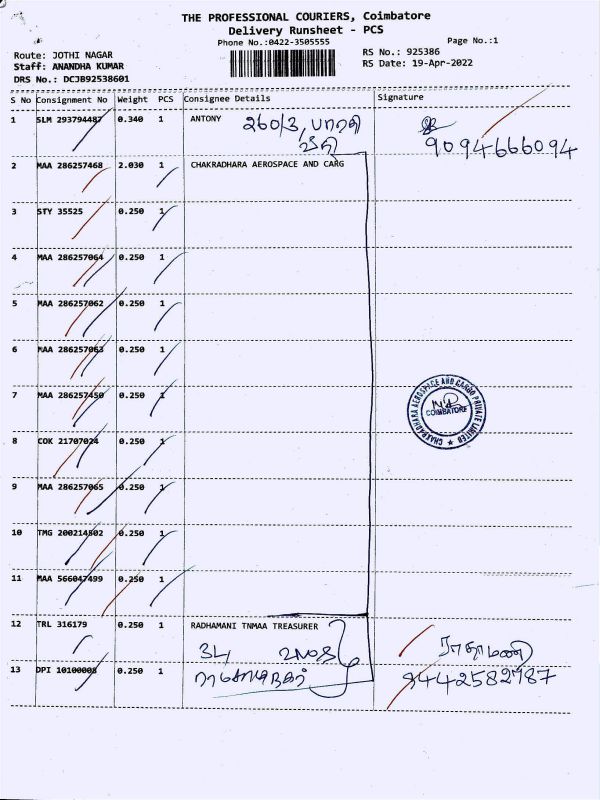 THE PROFESSIONAL COURIERS, Coimbatore
Delivery Runsheet - PCS
Phone No.:0422-3505555
Page No.:1
Route: JOTHI NAGAR
Staff: ANANDHA KUMAR
DRS No.: DCJB92538601
RS No.: 925386
RS Date: 19-Apr-2022
S No Consignment No Weight PCS Consignee Details Signature
1 SLM 293794487 0.340 1 ANTONY 260/3, பாரதி
வீதி
9094666094
2 MAA 286257468 2.030 1 CHAKRADHARA AEROSPACE AND CARG
3 STY 35525 0.250 1
4 MAA 286257064 0.250 1
5 MAA 286257062 0.250 1
6 MAA 286257063 0.250 1
7 MAA 286257450 0.250 1
CHAKRADHARA AEROSPACE AND CARGO PRIVATE LIMITED
COIMBATORE
8 COK 21707024 0.250 1
9 MAA 286257065 0.250 1
10 TMG 200214502 0.250 1
11 MAA 566047499 0.250 1
12 TRL 316179 0.250 1 RADHAMANI TNMAA TREASURER
34, ராதாமணி
13 DPI 10100008 0.250 1 9442582987